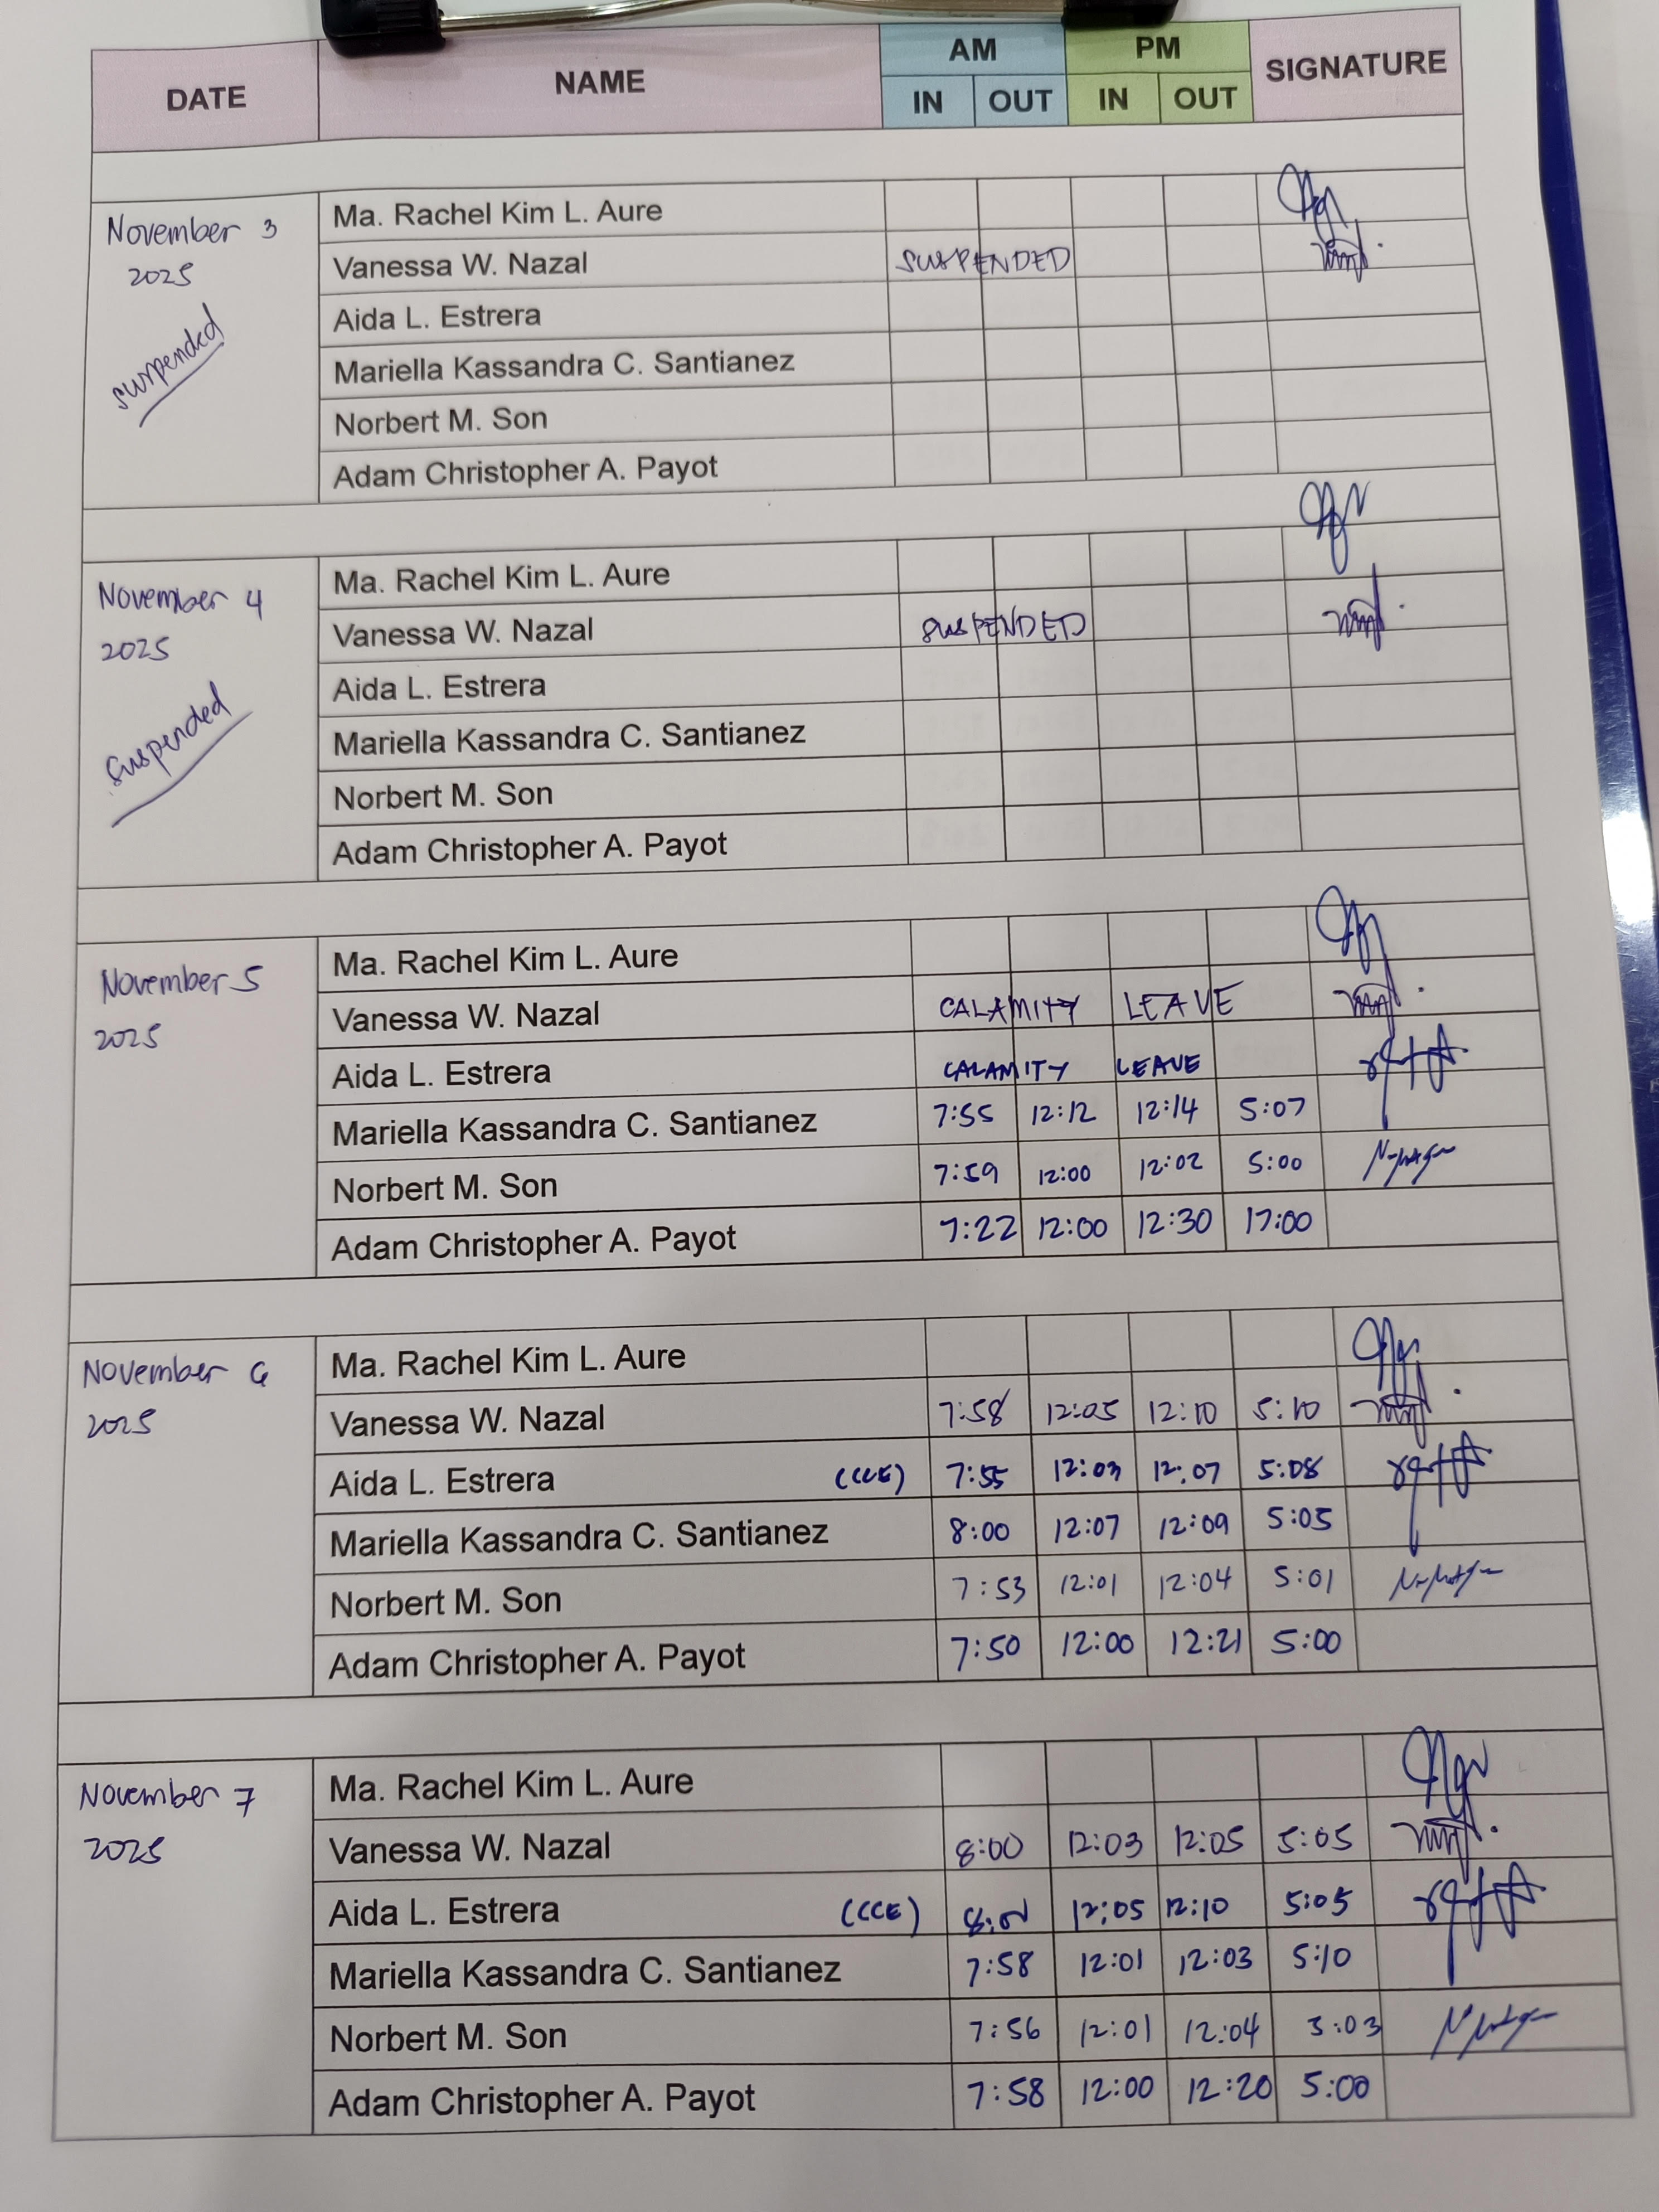 DATE NAME AM PM SIGNATURE
IN OUT IN OUT
November 3 2025 suspended
Ma. Rachel Kim L. Aure
Vanessa W. Nazal SUSPENDED
Aida L. Estrera
Mariella Kassandra C. Santianez
Norbert M. Son
Adam Christopher A. Payot
November 4 2025 suspended
Ma. Rachel Kim L. Aure
Vanessa W. Nazal SUSPENDED
Aida L. Estrera
Mariella Kassandra C. Santianez
Norbert M. Son
Adam Christopher A. Payot
November 5 2025
Ma. Rachel Kim L. Aure
Vanessa W. Nazal CALAMITY LEAVE
Aida L. Estrera CALAMITY LEAVE
Mariella Kassandra C. Santianez 7:55 12:12 12:14 5:07
Norbert M. Son 7:59 12:00 12:02 5:00
Adam Christopher A. Payot 7:22 12:00 12:30 17:00
November 6 2025
Ma. Rachel Kim L. Aure
Vanessa W. Nazal 7:58 12:05 12:10 5:10
Aida L. Estrera (CCE) 7:55 12:03 12:07 5:08
Mariella Kassandra C. Santianez 8:00 12:07 12:09 5:05
Norbert M. Son 7:53 12:01 12:04 5:01
Adam Christopher A. Payot 7:50 12:00 12:21 5:00
November 7 2025
Ma. Rachel Kim L. Aure
Vanessa W. Nazal 8:00 12:03 12:05 5:05
Aida L. Estrera (CCE) 12:05 12:10 5:05
Mariella Kassandra C. Santianez 7:58 12:01 12:03 5:10
Norbert M. Son 7:56 12:01 12:04 5:03
Adam Christopher A. Payot 7:58 12:00 12:20 5:00